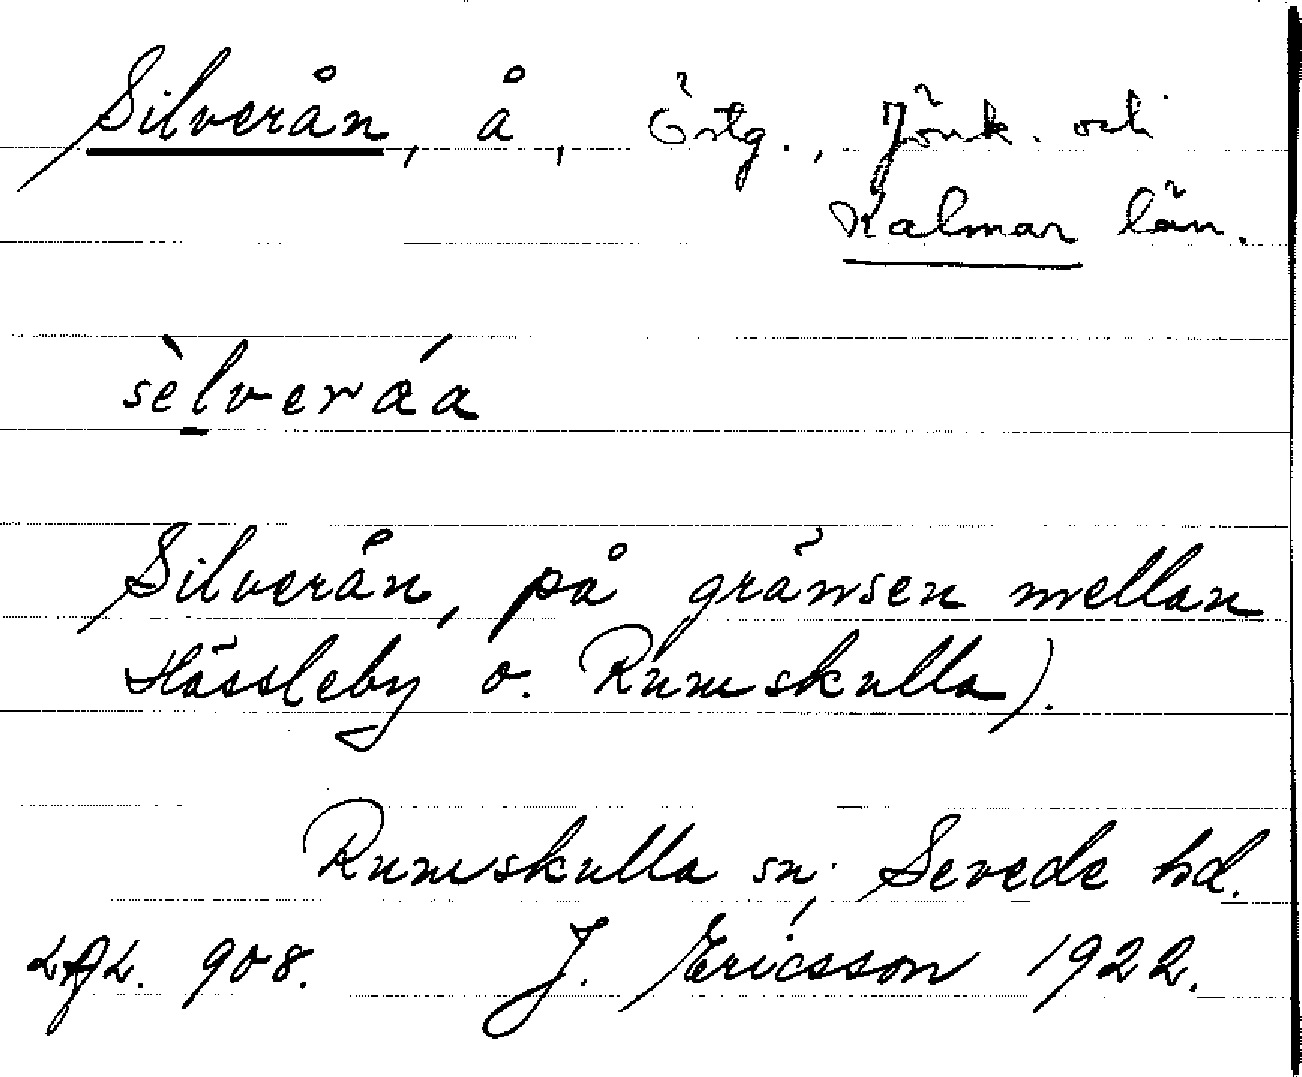 Silverån, å, Östg., Jönk. och
Kalmar län.
sèlveráa
Silverån, på gränsen mellan
Hässleby o. Rumskulla).
Rumskulla sn. Sevede hd.
908. J. Ericsson 1922.